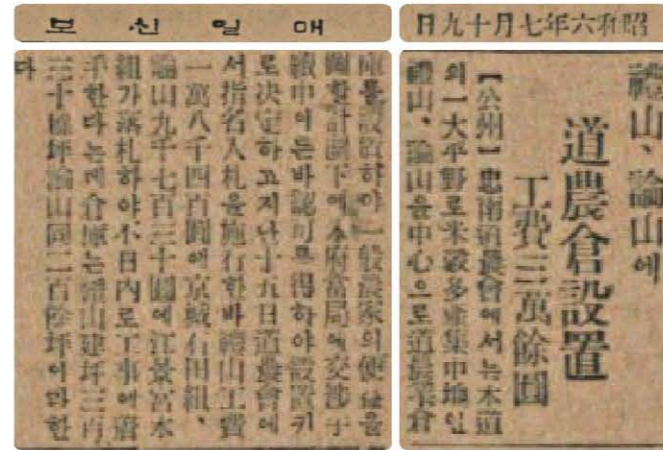 매일신보
昭和六年七月十九日
禮山、論山에
道農倉設置
工費三萬餘圓
【公州】忠南道農會에서는本道
의一大平野로米穀多産集中地인
禮山、論山을中心으로道農業倉
庫를設置하야一般農家의便益을
圖할計劃下에本府當局에交涉手
續中이든바認可를得하야設置키
로決定하고지난十五日道農會에
서指名入札을施行한바禮山工費
一萬八千四百圓에京城石田組、
論山九千七百三十圓에江景宮本
組가落札하야不日內로工事에着
手한다는데倉庫는禮山建坪三百
三十餘坪論山同二百餘坪이라한
다